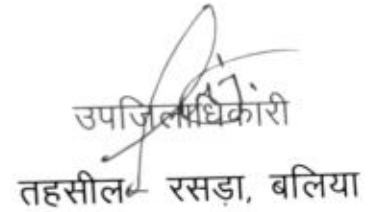 उपजिलाधिकारी
तहसील रसड़ा, बलिया